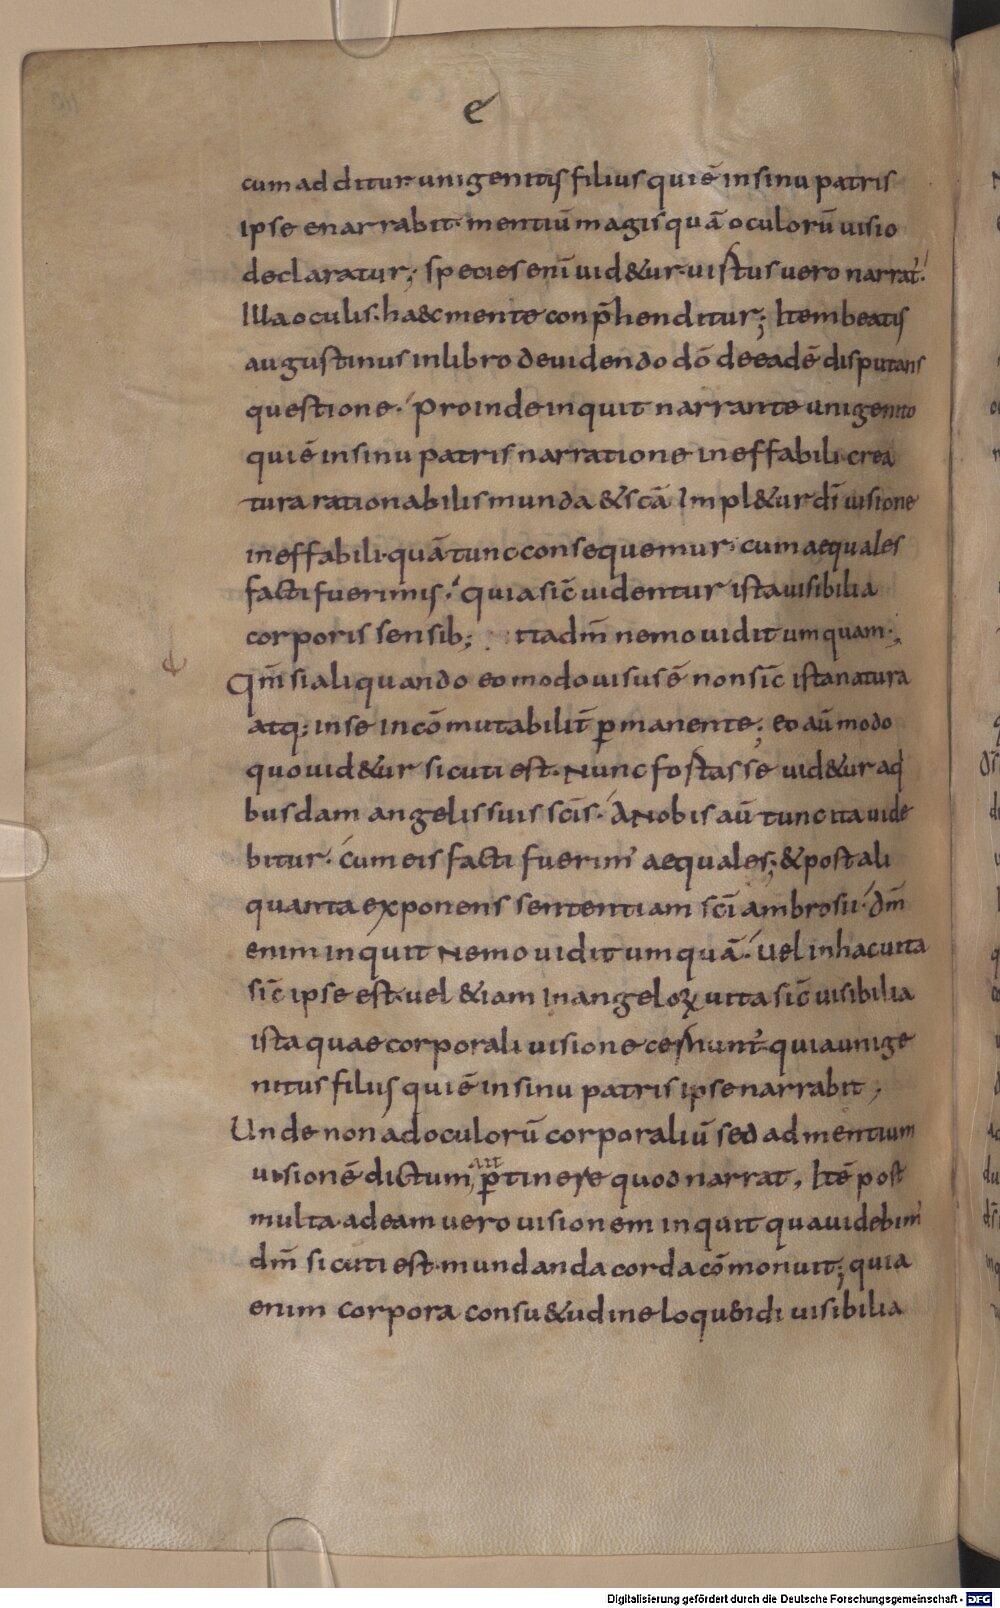 e
cum additur unigenitus filius qui ē in sinu patris
ipse enarrabit. mentiū magis quā oculorū uisio
declaratur; species eni uid&ur. uistus uero narrat̉.
Illa oculis. haec mente conp̄henditur; Item beatus
augustinus in libro de uidendo dō de eadē disputans
questione. Proinde inquit narrante unigenito
qui ē in sinu patris narratione ineffabili. crea
tura rationabilis munda & scā Impl&ur dī uisione
ineffabili. quā tunc consequemur. cum aequales
facti fuerimus. quia sic̄ uidentur ista uisibilia
corporis sensib; tia dm̄ nemo uidit umquam.;
Qm̄ si aliquando eo modo uisus ē non sic̄ ista natura
atq; in se incōmutabilit̄ ꝑmanente; eo aū modo
quo uid&ur sicuti est. Nunc fostasse uid&ur aq
busdam angelis suis sc̄is. A nobis aū tunc ita uide
bitur. Cum eis facti fuerim̉ aequales; & post ali
quanta exponens sententiam sc̄i ambrosii. dm̄
enim inquit Nemo uidit umquā. Uel in hac uita
sic̄ ipse est. uel &iam In angeloꝝ uita sic̄ uisibilia
ista quae corporali uisione cernunt̉. quia unige
nitus filius qui ē in sinu patris ipse narrabit;
Unde non ad oculorū corporaliū sed ad mentium
uisionē dictum ait ꝑtinere quod narrat, Itē post
multa. ad eam uero uisionem inquit qua uidebim̉
dm̄ sicuti est. mundanda corda cōmonuit; quia
enim corpora consu&udine loquendi uisibilia
Digitalisierung gefördert durch die Deutsche Forschungsgemeinschaft - DFG